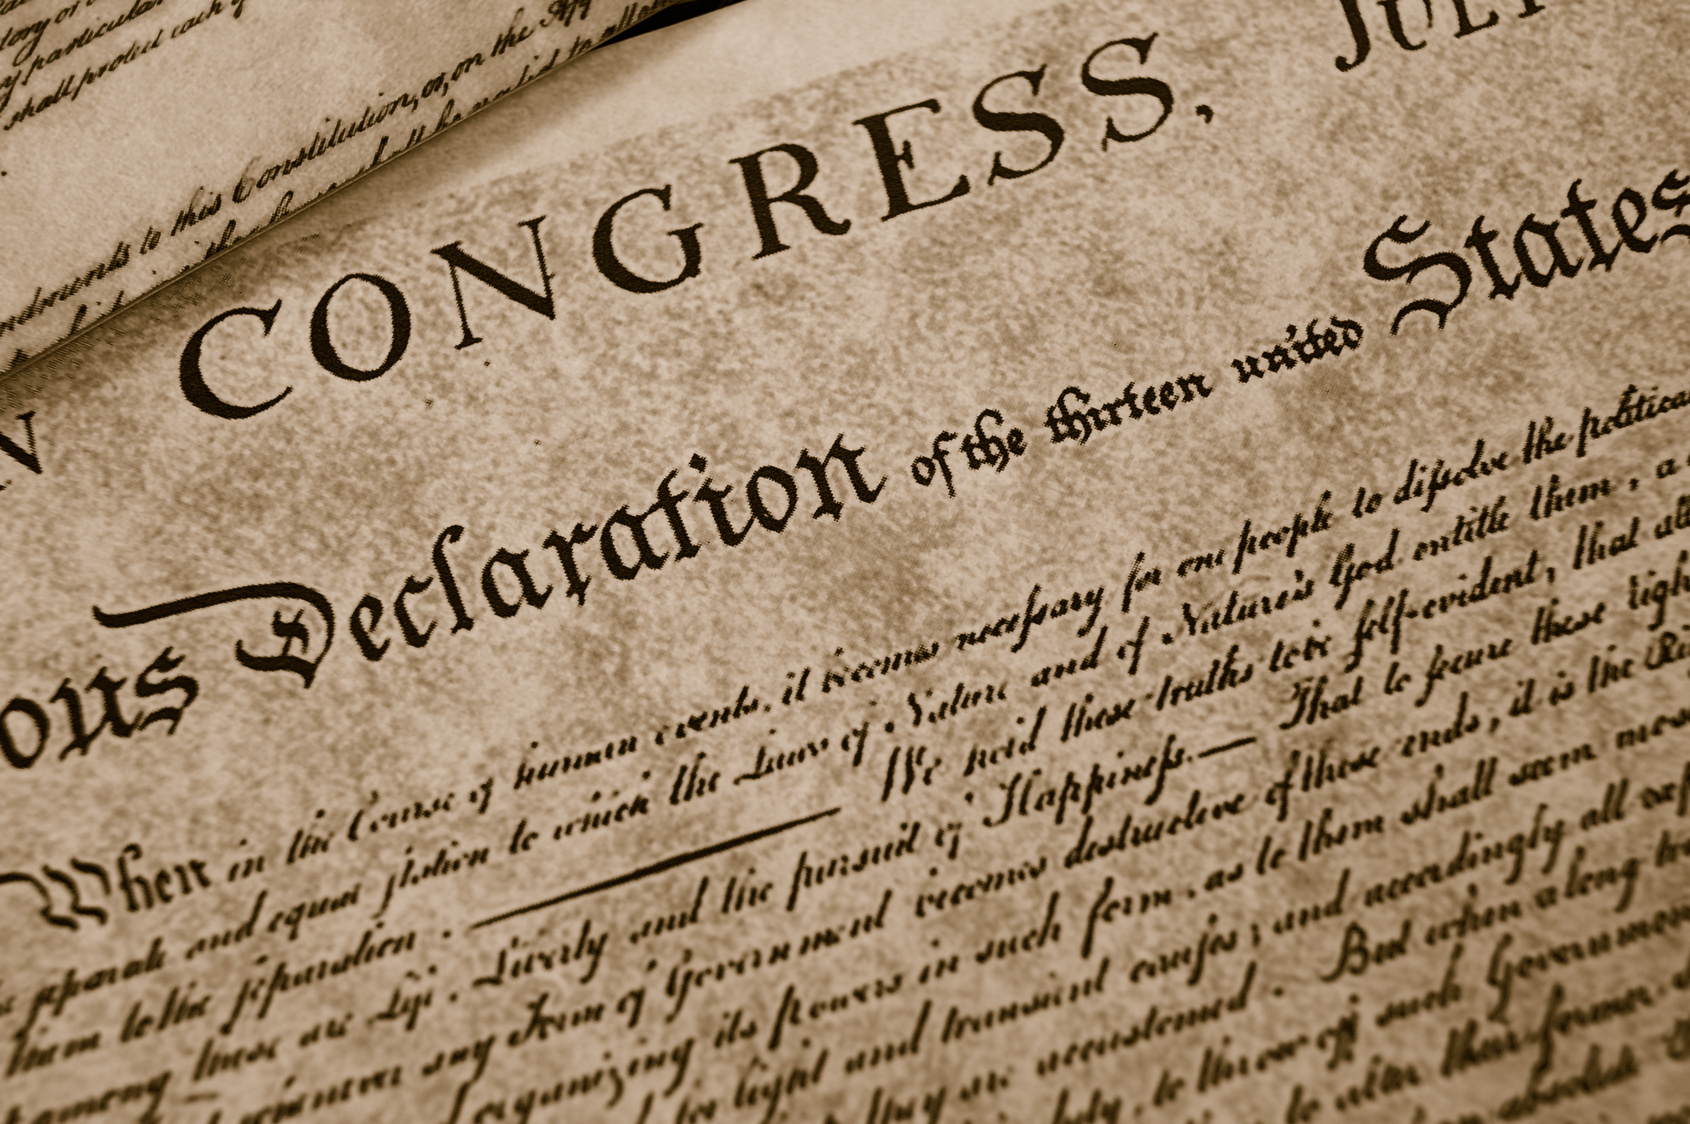 tory or
y particular
shall protect each of
ndments to this Constitution, or, on the App
N CONGRESS, JULY
ous Declaration of the thirteen united States
When in the Course of human events, it becomes necessary for one people to dissolve the political
separate and equal station to which the Laws of Nature and of Nature's God entitle them, a
them to the separation. — We hold these truths to be self-evident, that all
among these are Life, Liberty and the pursuit of Happiness. — That to secure these righ
whenever any Form of Government becomes destructive of these ends, it is the Ri
organizing its powers in such form, as to them shall seem mos
for light and transient causes; and accordingly all exp
they are accustomed. But when a long tra
duty, to throw off such Governmen
to alter their former
absolute